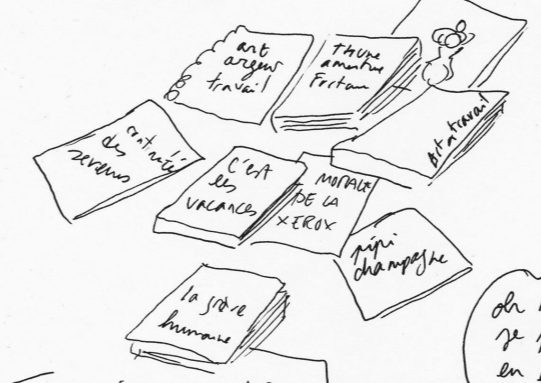 art
argent
travail
Thune
amertume
Fortune
art et travail
continuité
des
revenus
C'est
les
vacances
MORALE
DE LA
XEROX
pipi
champagne
la grève
humaine
oh
je
en